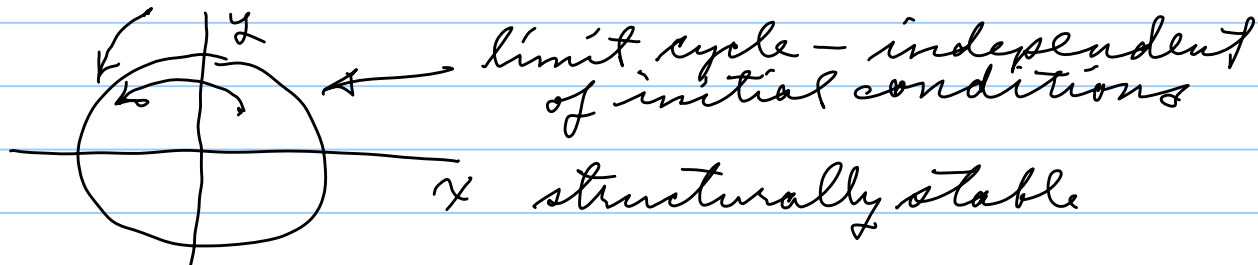 y
limit cycle – independent
of initial conditions
x
structurally stable